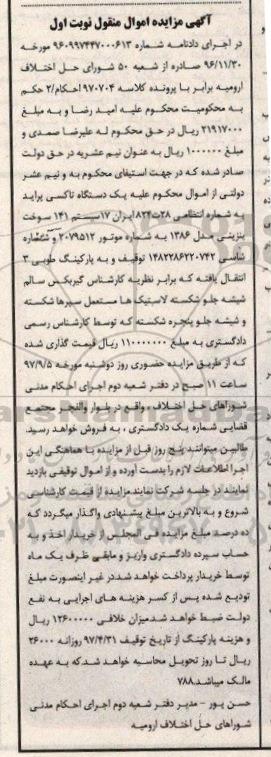 آگهی مزایده اموال منقول نوبت اول
در اجرای دادنامه شماره ۹۶۰۹۹۷۴۴۷۰۰۰۶۱۳ مورخه
۹۶/۱۱/۳۰ صادره از شعبه ۵۰ شورای حل اختلاف
ارومیه برابر با پرونده کلاسه ۹۷۰۷۰۴ احکام/۲ حکم
به محکومیت محکوم علیه امید رضا و به مبلغ
۲۱۹۱۷۰۰۰ ریال در حق محکوم له علیرضا صمدی و
مبلغ ۱۰۰۰۰۰۰ ریال به عنوان نیم عشریه در حق دولت
صادر شده که در جهت استیفای محکوم به و نیم عشر
دولتی از اموال محکوم علیه یک دستگاه تاکسی پراید
به شماره انتظامی ۲۸ت۸۲۴ ایران ۱۷ سیستم ۱۴۱ سوخت
بنزینی مدل ۱۳۸۶ به شماره موتور ۲۰۷۹۵۱۲ و شماره
شاسی ۱۴۸۲۲۸۶۲۲۰۷۴۲ توقیف و به پارکینگ طوبی ۳
انتقال یافته که برابر نظریه کارشناس گیربکس سالم
شیشه جلو شکسته لاستیک ها مستعمل سپرها شکسته
و شیشه جلو پنجره شکسته که توسط کارشناس رسمی
دادگستری به مبلغ ۱۱۰۰۰۰۰۰ ریال قیمت گذاری شده
که از طریق مزایده حضوری روز دوشنبه مورخه ۹۷/۹/۵
ساعت ۱۱ صبح در دفتر شعبه دوم اجرای احکام مدنی
شوراهای حل اختلاف واقع در بلوار والفجر مجتمع
قضایی شماره یک دادگستری ، به فروش خواهد رسید.
طالبین میتوانند پنج روز قبل از مزایده با هماهنگی این
اجرا اطلاعات لازم را بدست آورده و از اموال توقیفی بازدید
نمایند در جلسه شرکت نمایند مزایده از قیمت کارشناسی
شروع و به بالاترین مبلغ پیشنهادی واگذار میگردد که
ده درصد مبلغ مزایده فی المجلس از خریدار اخذ و به
حساب سپرده دادگستری واریز و مابقی ظرف یک ماه
توسط خریدار پرداخت خواهد شد در غیر اینصورت مبلغ
تودیع شده پس از کسر هزینه های اجرایی به نفع
دولت ضبط خواهد شد میزان خلافی ۱۲۶۰۰۰۰۰ ریال
و هزینه پارکینگ از تاریخ توقیف ۹۷/۴/۳۱ روزانه ۲۶۰۰۰
ریال تا روز تحویل محاسبه خواهد شد که به عهده
مالک میباشد.۷۸۸
حسن پور - مدیر دفتر شعبه دوم اجرای احکام مدنی
شوراهای حل اختلاف ارومیه